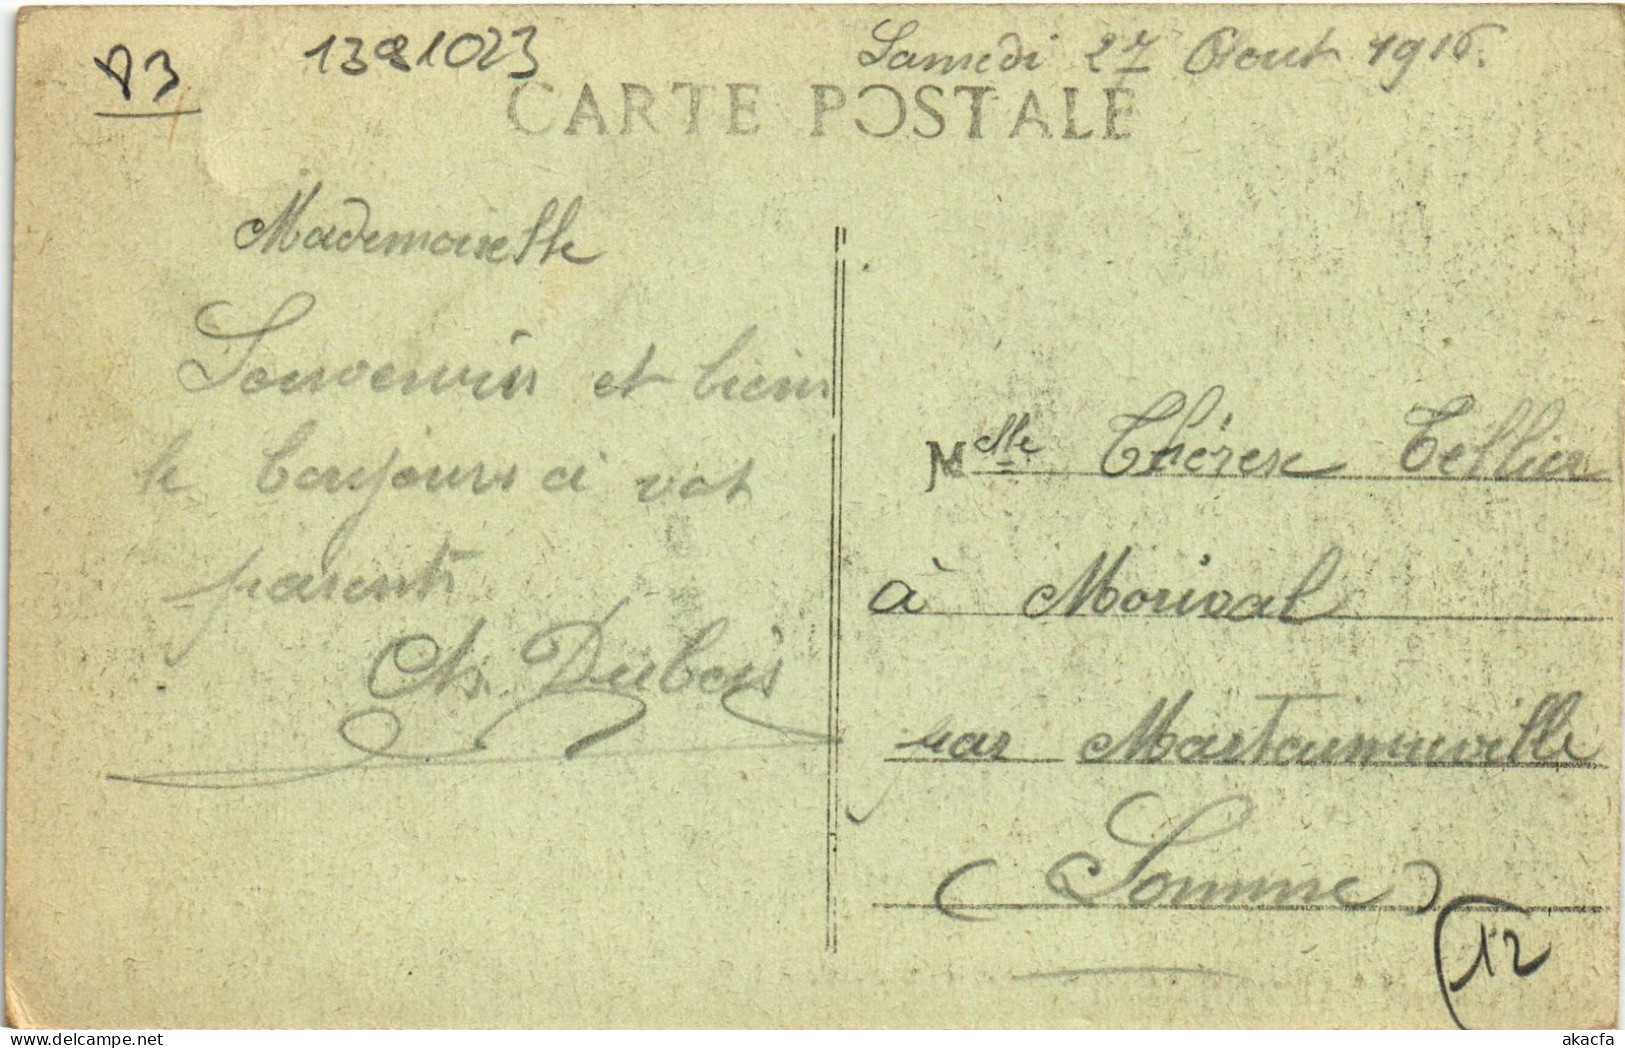 83
1381023
Samedi 27 Aout 1916.
CARTE POSTALE
Mademoiselle
Souvenir et bien
le toujours à vot
parents
Ch. Dubois
Mlle Thérèse Tellier
à Morival
par Martainneville
(Somme)
12
akacfa